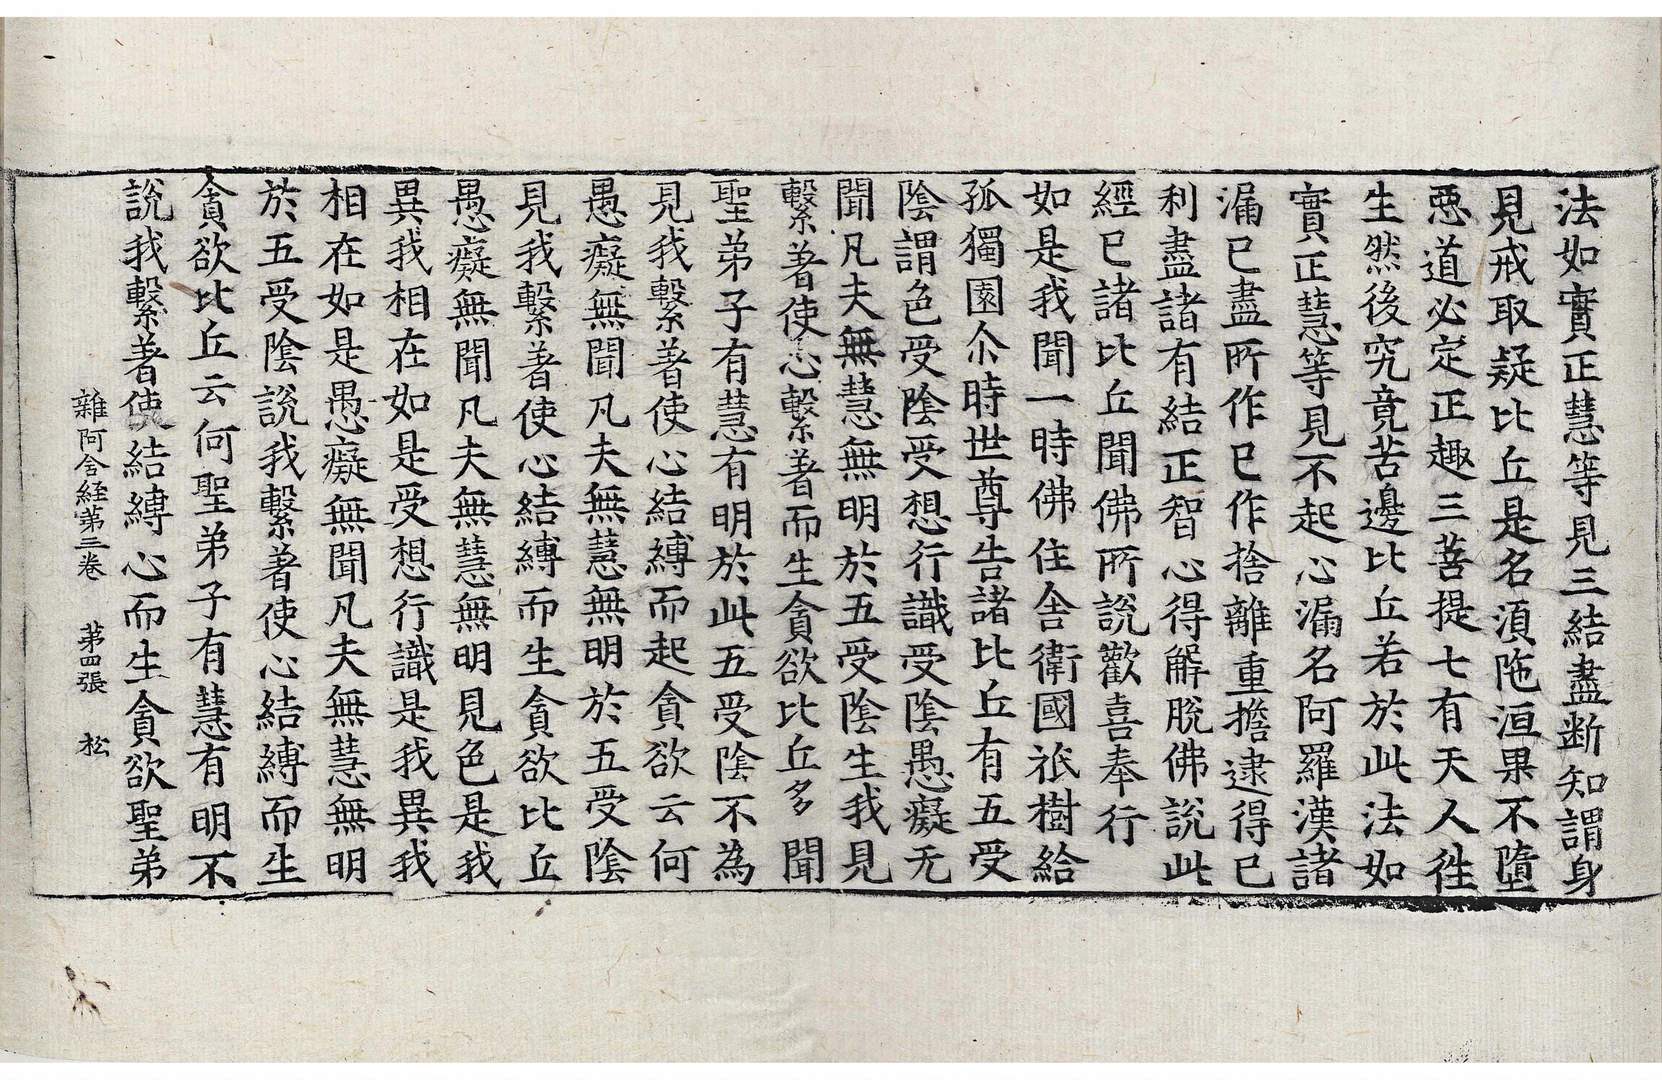 法如實正慧等見三結盡断知謂身
見戒取疑比丘是名湏陁洹果不墮
惡道必定正趣三菩提七有天人徃
生然後究竟苦邊比丘若於此法如
實正慧等見不起心漏名阿羅漢諸
漏已盡所作已作捨離重擔逮得已
利盡諸有結正智心得解脫佛說此
經已諸比丘聞佛所說歡喜奉行
如是我聞一時佛住舍衛國祇樹給
孤獨園尒時世尊告諸比丘有五受
陰謂色受陰受想行識受陰愚癡无
聞凡夫無慧無明於五受陰生我見
繫著使心繫著而生貪欲比丘多聞
聖弟子有慧有明於此五受陰不為
見我繫著使心結縛而起貪欲云何
愚癡無聞凡夫無慧無明於五受陰
見我繫著使心結縛而生貪欲比丘
愚癡無聞凡夫無慧無明見色是我
異我相在如是受想行識是我異我
相在如是愚癡無聞凡夫無慧無明
於五受陰說我繫著使心結縛而生
貪欲比丘云何聖弟子有慧有明不
說我繫著使結縛心而生貪欲聖弟
雜阿含経苐三卷 苐四張 松